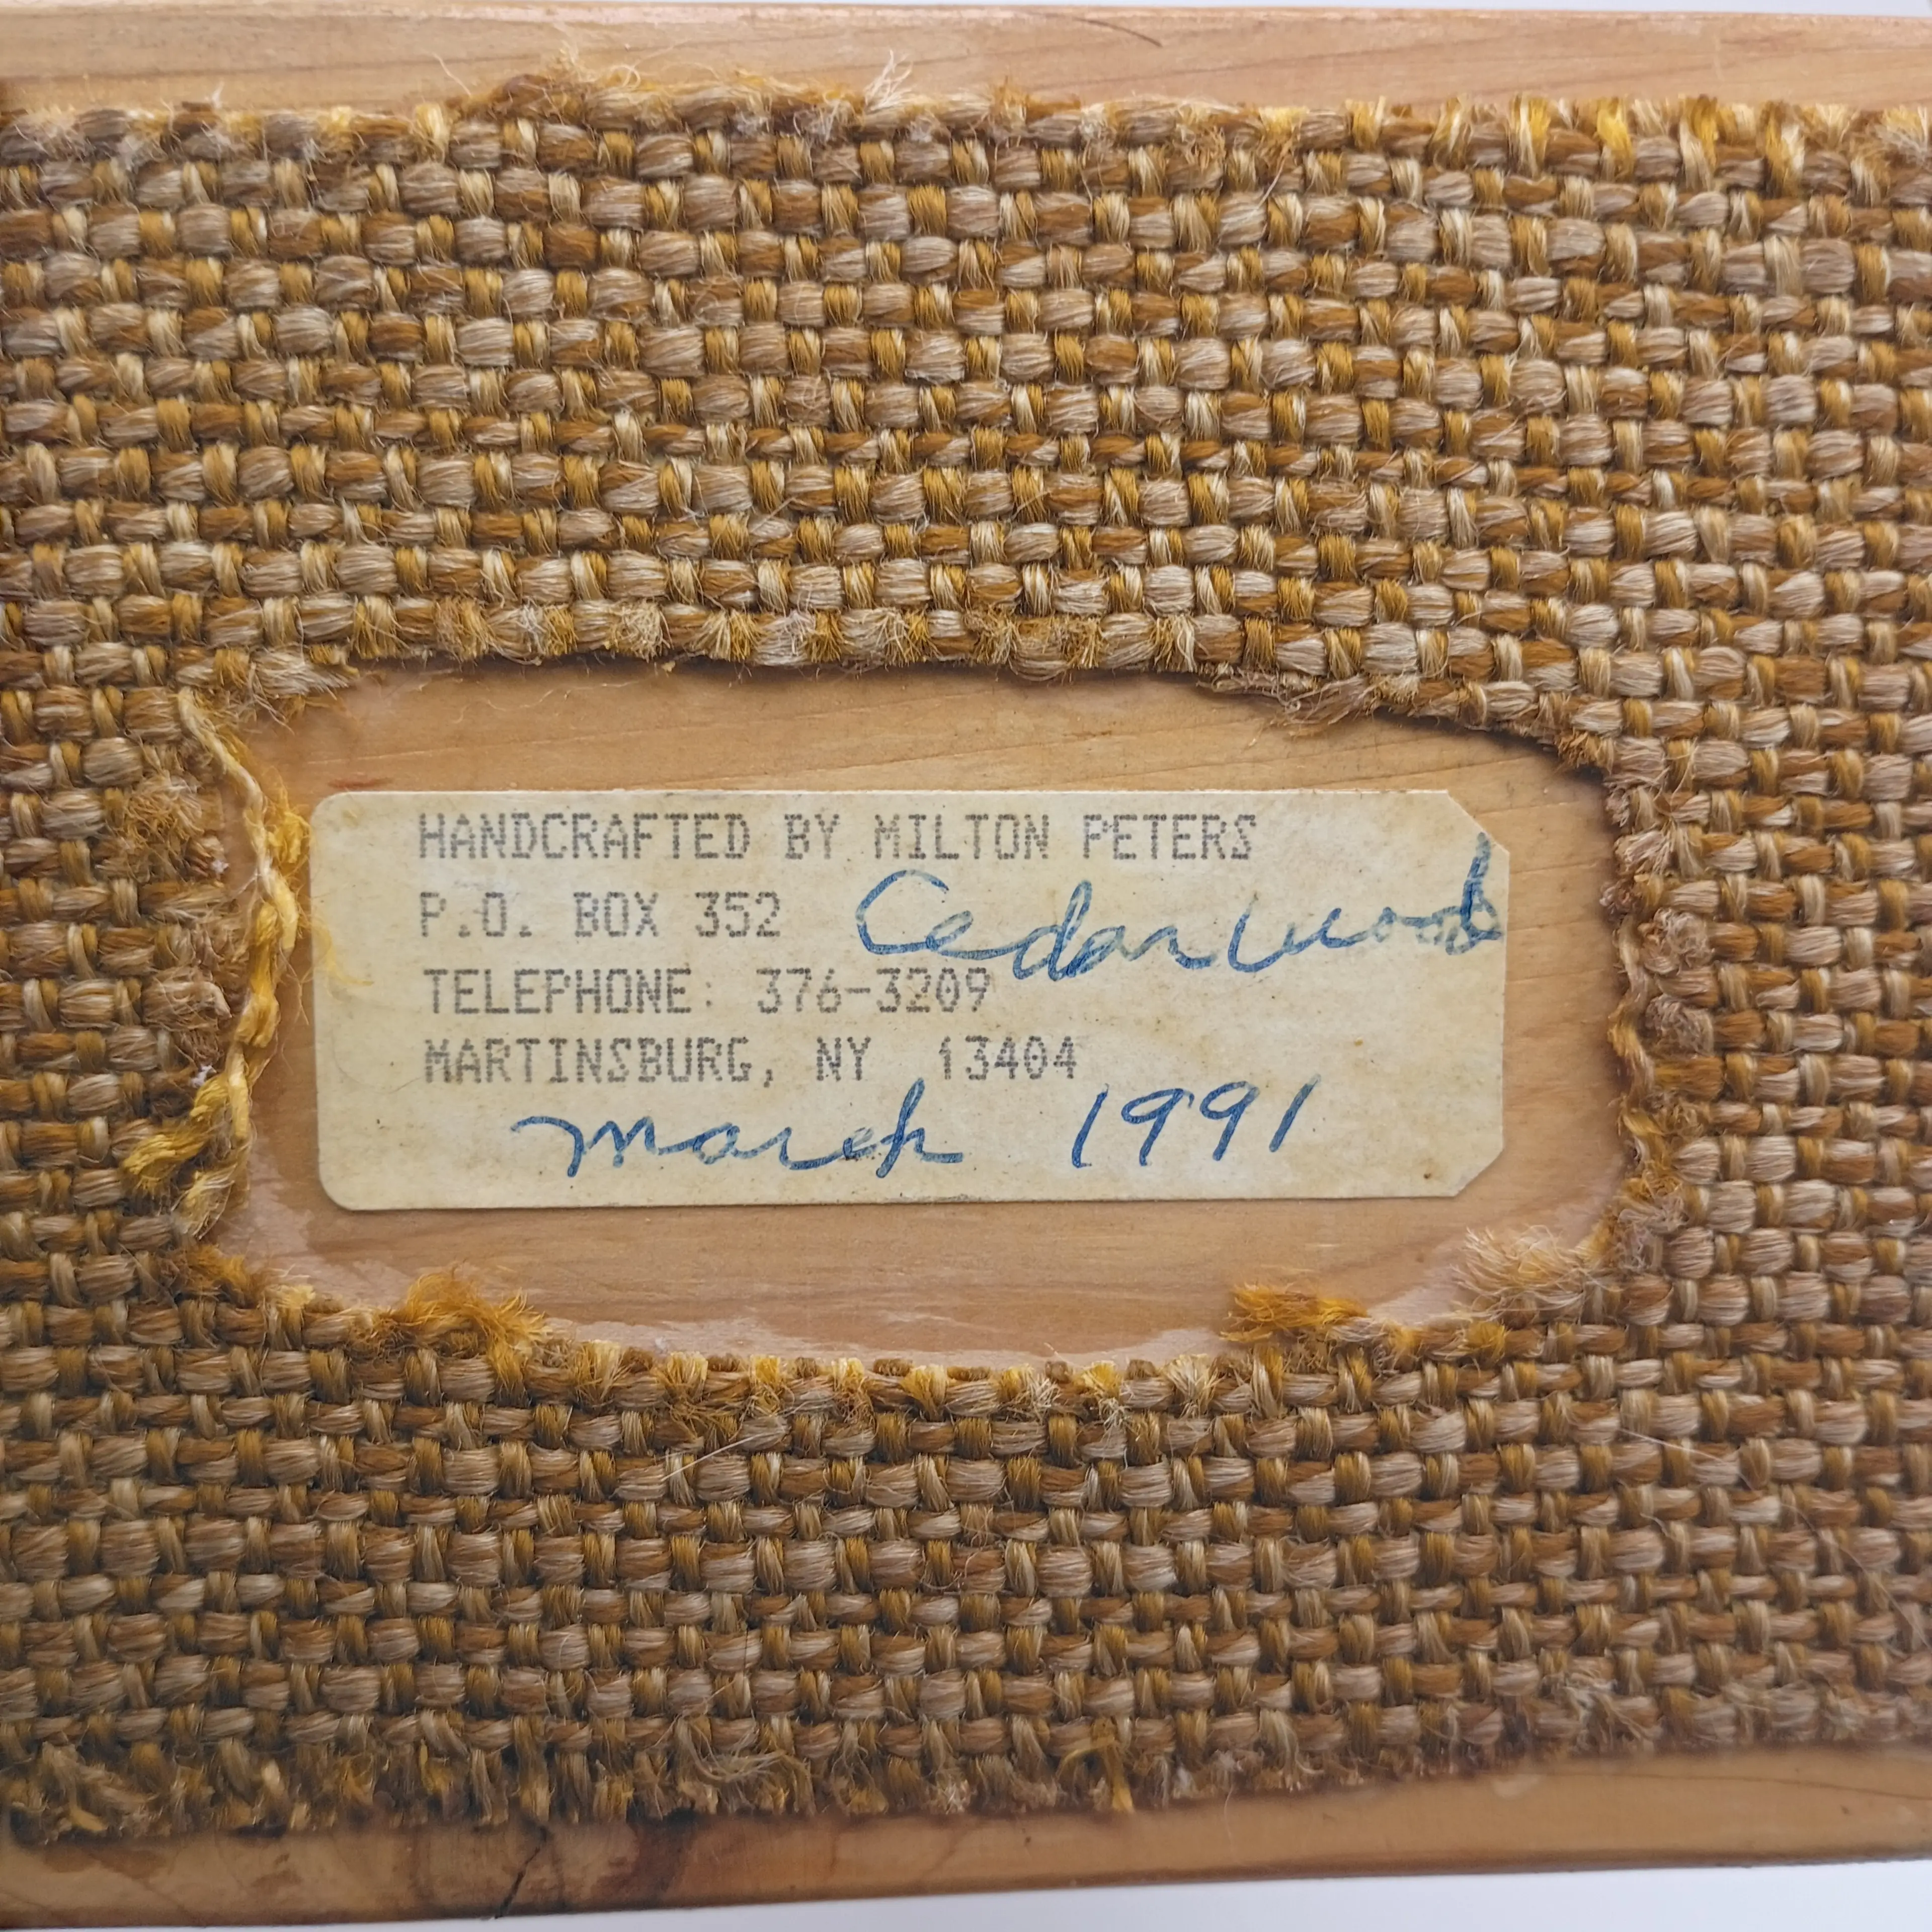 HANDCRAFTED BY MILTON PETERS
P.O. BOX 352 Cedarwood
TELEPHONE: 376-3209
MARTINSBURG, NY 13404
March 1991